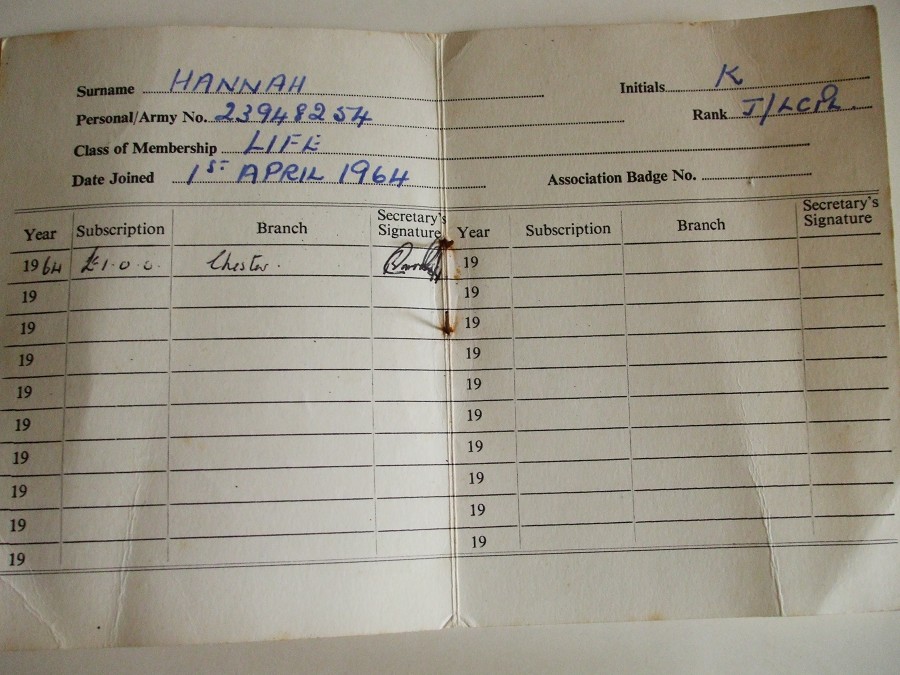 Surname HANNAH Initials K
Personal/Army No. 23948254 Rank J/LCPL.
Class of Membership LIFE
Date Joined 1ST APRIL 1964 Association Badge No.
Year Subscription Branch Secretary's Signature Year Subscription Branch Secretary's Signature
1964 £1.0.0. Chester. 19
19 19
19 19
19 19
19 19
19 19
19 19
19 19
19 19
19 19